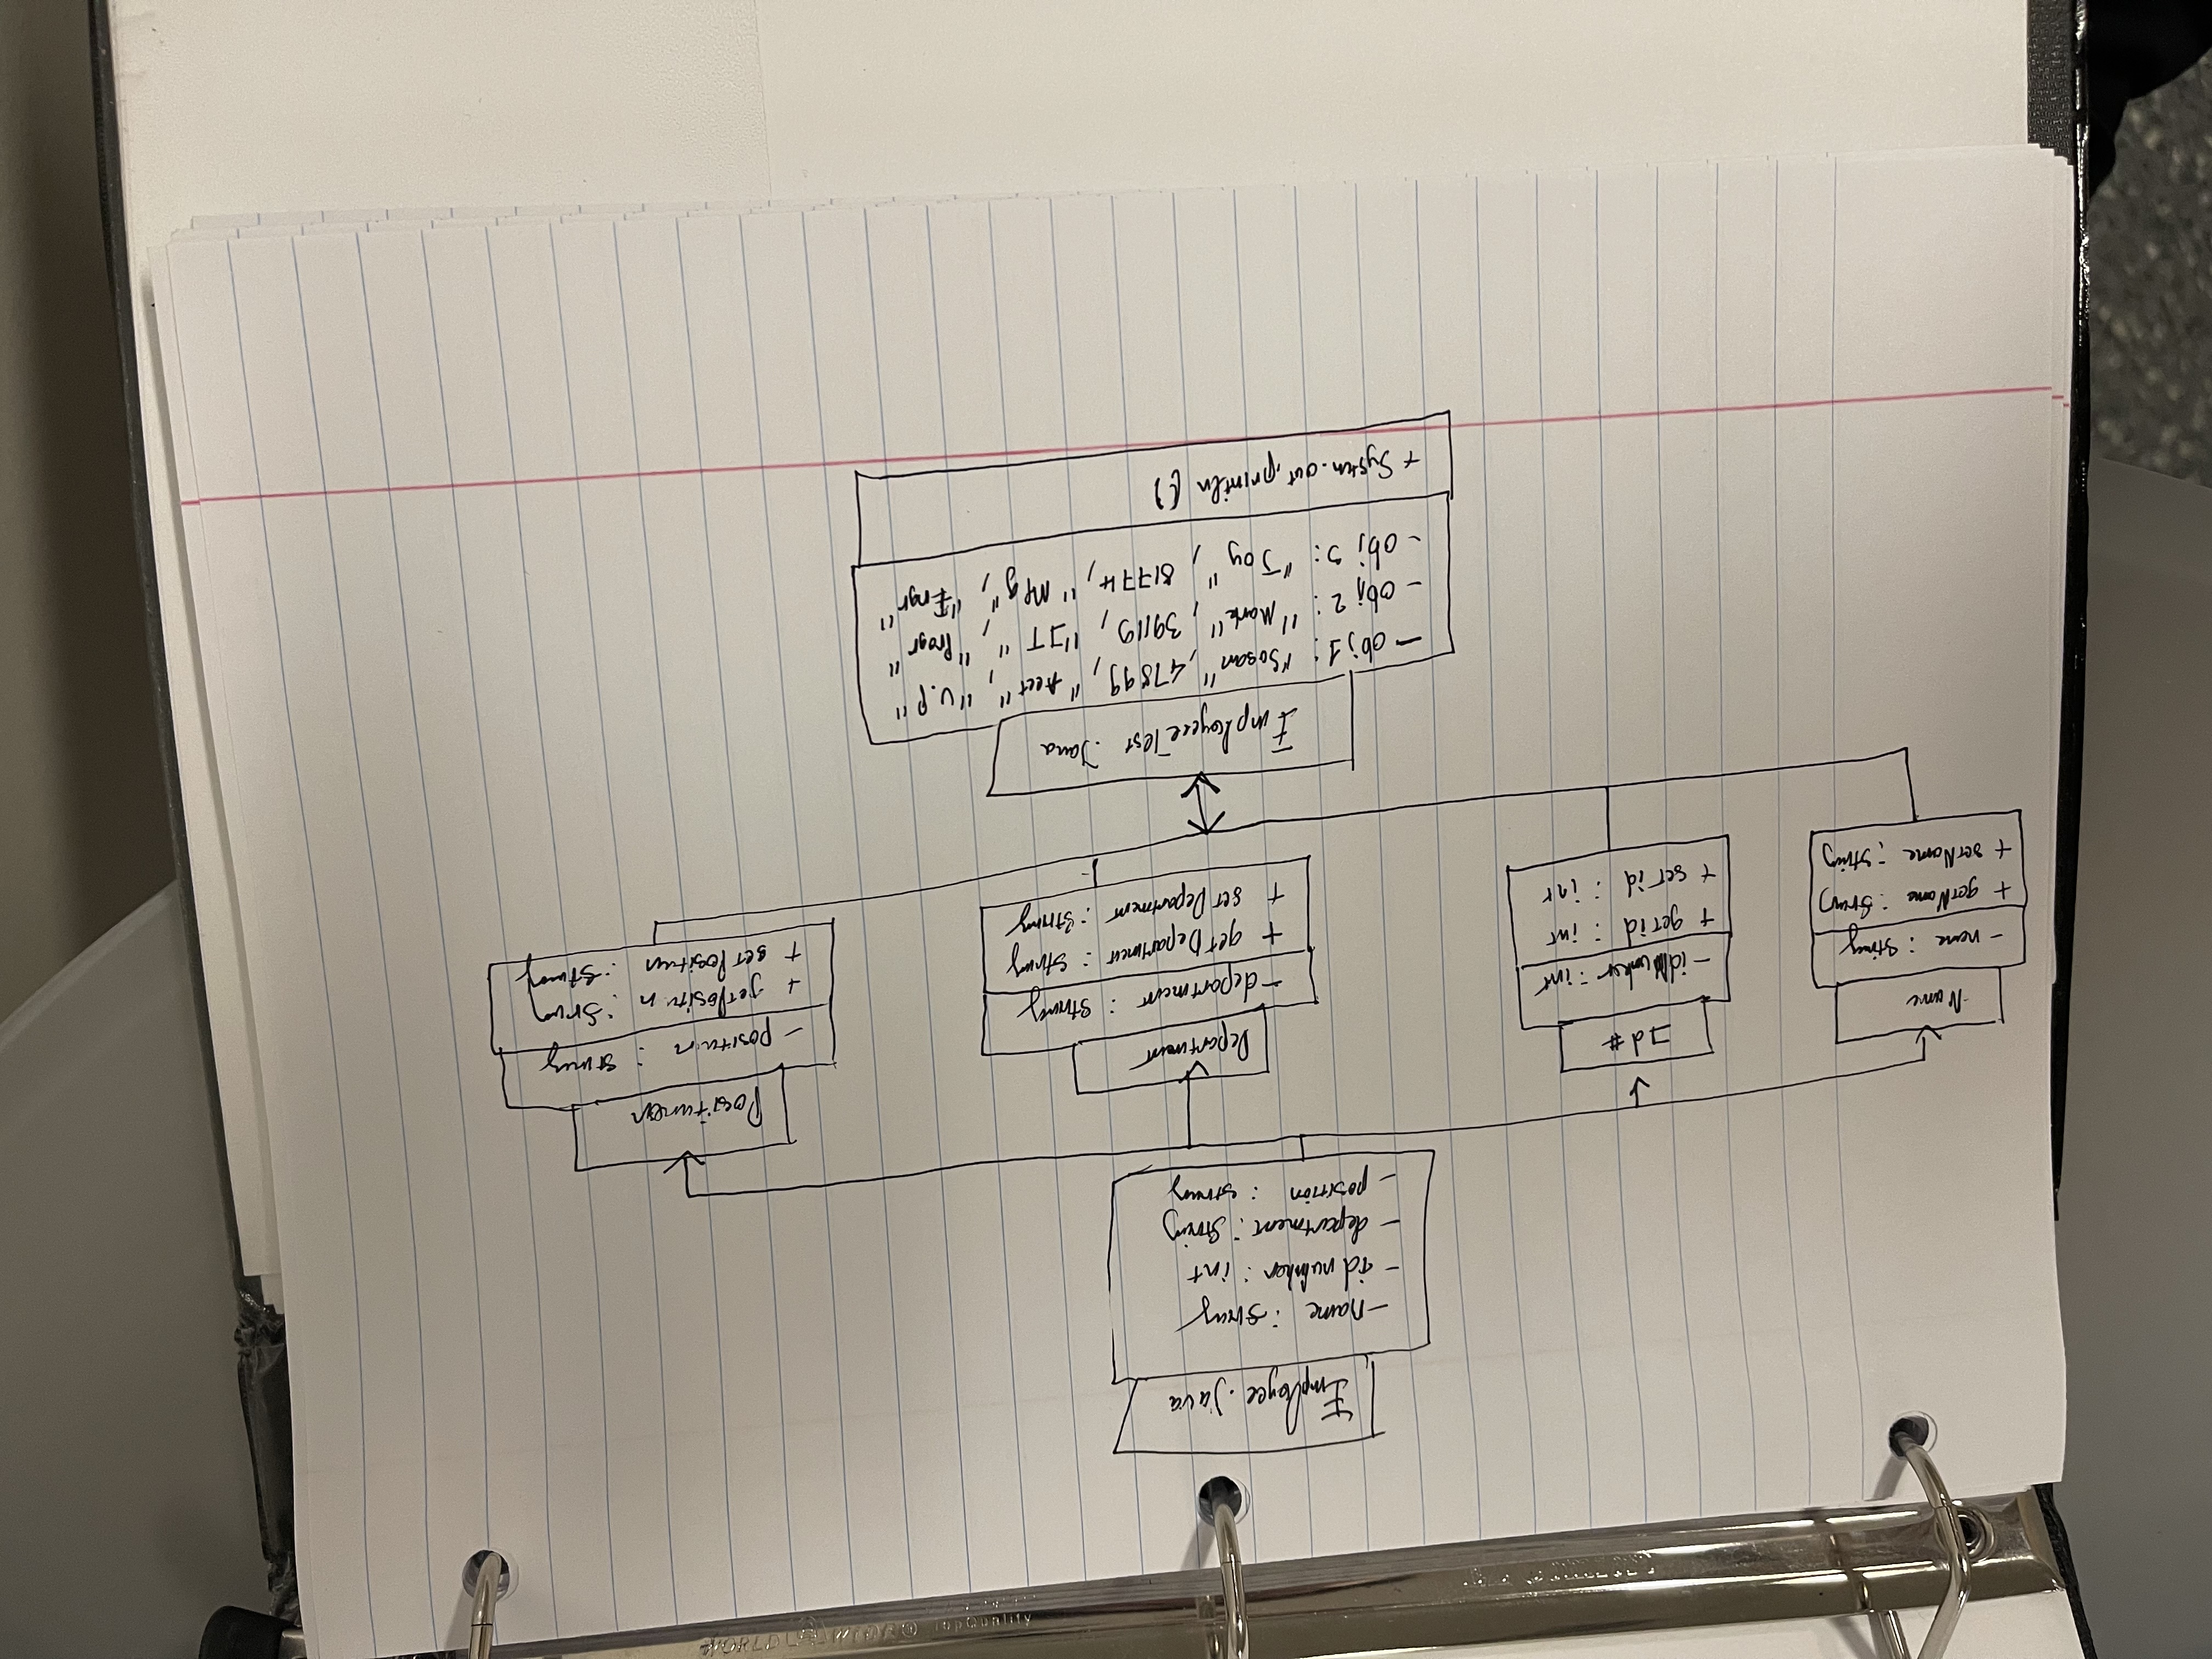 Employee.java
- name : string
- id number : int
- department : String
- position : string
Name
- name : String
+ getName : String
+ setName : string
Id #
- idNumber : int
+ get id : int
+ set id : int
Department
- department : String
+ get Department : String
+ set Department : String
Position
- position : string
+ getPosition : String
+ set Position : string
EmployeeTest .Java
- obj 1 : "Susan", 47899, "Acct", "V.P"
- obj 2 : "Mark", 39119, "IT", "Progr"
- obj 3 : "Joy", 81774, "Mfg", "Engr"
+ System.out.println ()